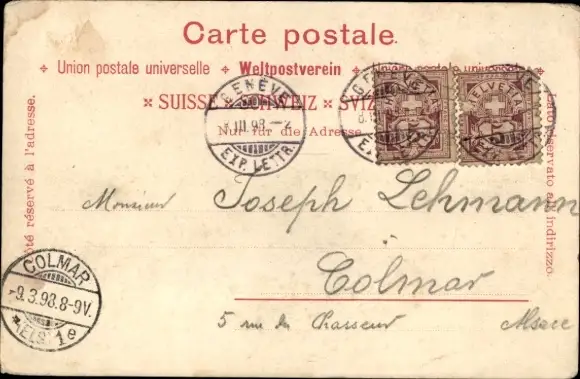 Carte postale.
Union postale universelle Weltpostverein Unione postale universale
SUISSE SCHWEIZ SVIZ
Nur für die Adresse
Côté réservé à l'adresse.
Lato riservato all' indirizzo.
GENÈVE
III.98.
EXP. LETTR.
HELVETIA
Monsieur Joseph Lehmann
Colmar
5 rue du Chasseur Alsace
COLMAR
9.3.98.8-9V.
(ELS.) 1e